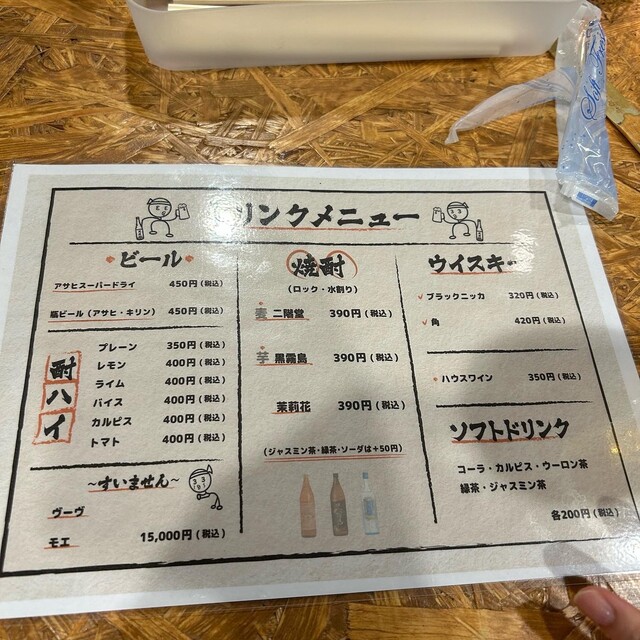 Soft
リンクメニュー
ビール
アサヒスーパードライ 450円(税込)
瓶ビール(アサヒ・キリン) 450円(税込)
酎ハイ
プレーン 350円(税込)
レモン 400円(税込)
ライム 400円(税込)
バイス 400円(税込)
カルピス 400円(税込)
トマト 400円(税込)
~すいません~
ヴーヴ
モエ 15,000円(税込)
焼酎
(ロック・水割り)
麦 二階堂 390円(税込)
芋 黒霧島 390円(税込)
茉莉花 390円(税込)
(ジャスミン茶・緑茶・ソーダは+50円)
ウイスキー
ブラックニッカ 320円(税込)
角 420円(税込)
ハウスワイン 350円(税込)
ソフトドリンク
コーラ・カルピス・ウーロン茶
緑茶・ジャスミン茶
各200円(税込)